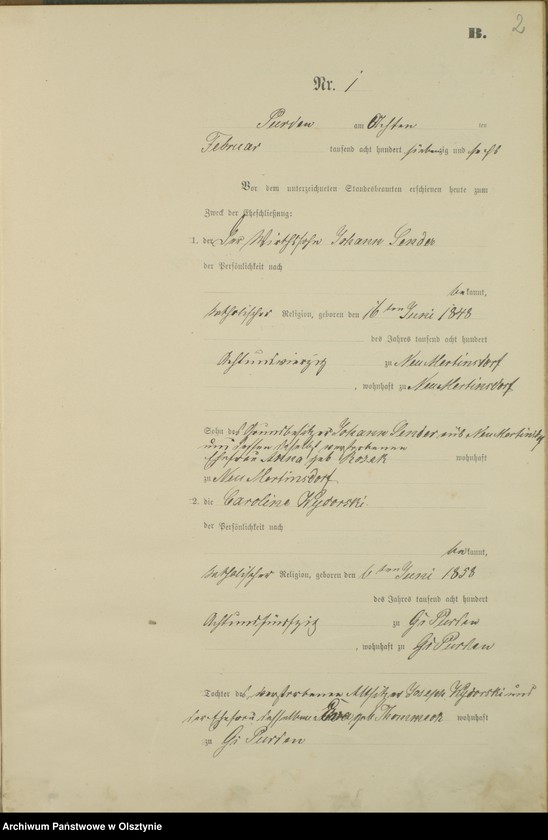 B. 2
Nr. 1
Purden am Achten ten
Februar tausend acht hundert siebenzig und sechs
Vor dem unterzeichneten Standesbeamten erschienen heute zum
Zweck der Eheschließung:
1. der Der Wirthssohn Johann Sender
der Persönlichkeit nach
bekannt,
katholischer Religion, geboren den 16 ten Juni 1848
des Jahres tausend acht hundert
Achtundvierzig zu Neu Martinsdorf
, wohnhaft zu Neu Martinsdorf
Sohn des Grundbesitzer Johann Sender, aus Neu Martinsdorf
und dessen daselbst verstorbenen
Ehefrau Anna, geb. wohnhaft
zu Neu Martinsdorf
2. die Caroline Wydorski
der Persönlichkeit nach
bekannt,
katholischer Religion, geboren den 6 ten Juni 1858
des Jahres tausend acht hundert
Achtundfünfzig zu Gr Purden
, wohnhaft zu Gr Purden
Tochter des verstorbenen Altsitzer Joseph Wydorski und
der Ehefrau desselben geb. wohnhaft
zu Gr Purden
Archiwum Państwowe w Olsztynie